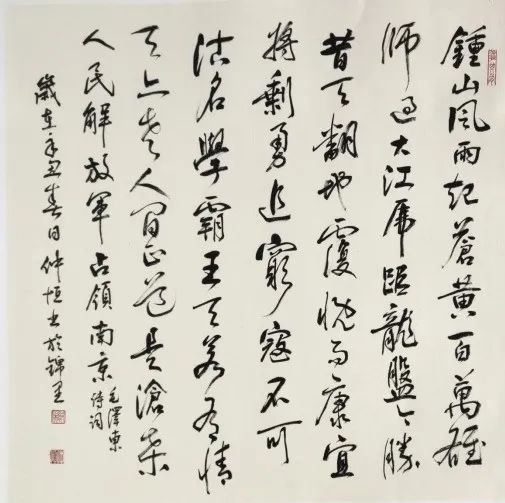 鍾山風雨起蒼黃百萬雄
師過大江虎踞龍盤今勝
昔天翻地覆慨而慷宜
將剩勇追窮寇不可
沽名學霸王天若有情
天亦老人間正道是滄桑
人民解放軍占領南京
毛澤東
詩詞
歲在辛丑春日仲恒书於錦里